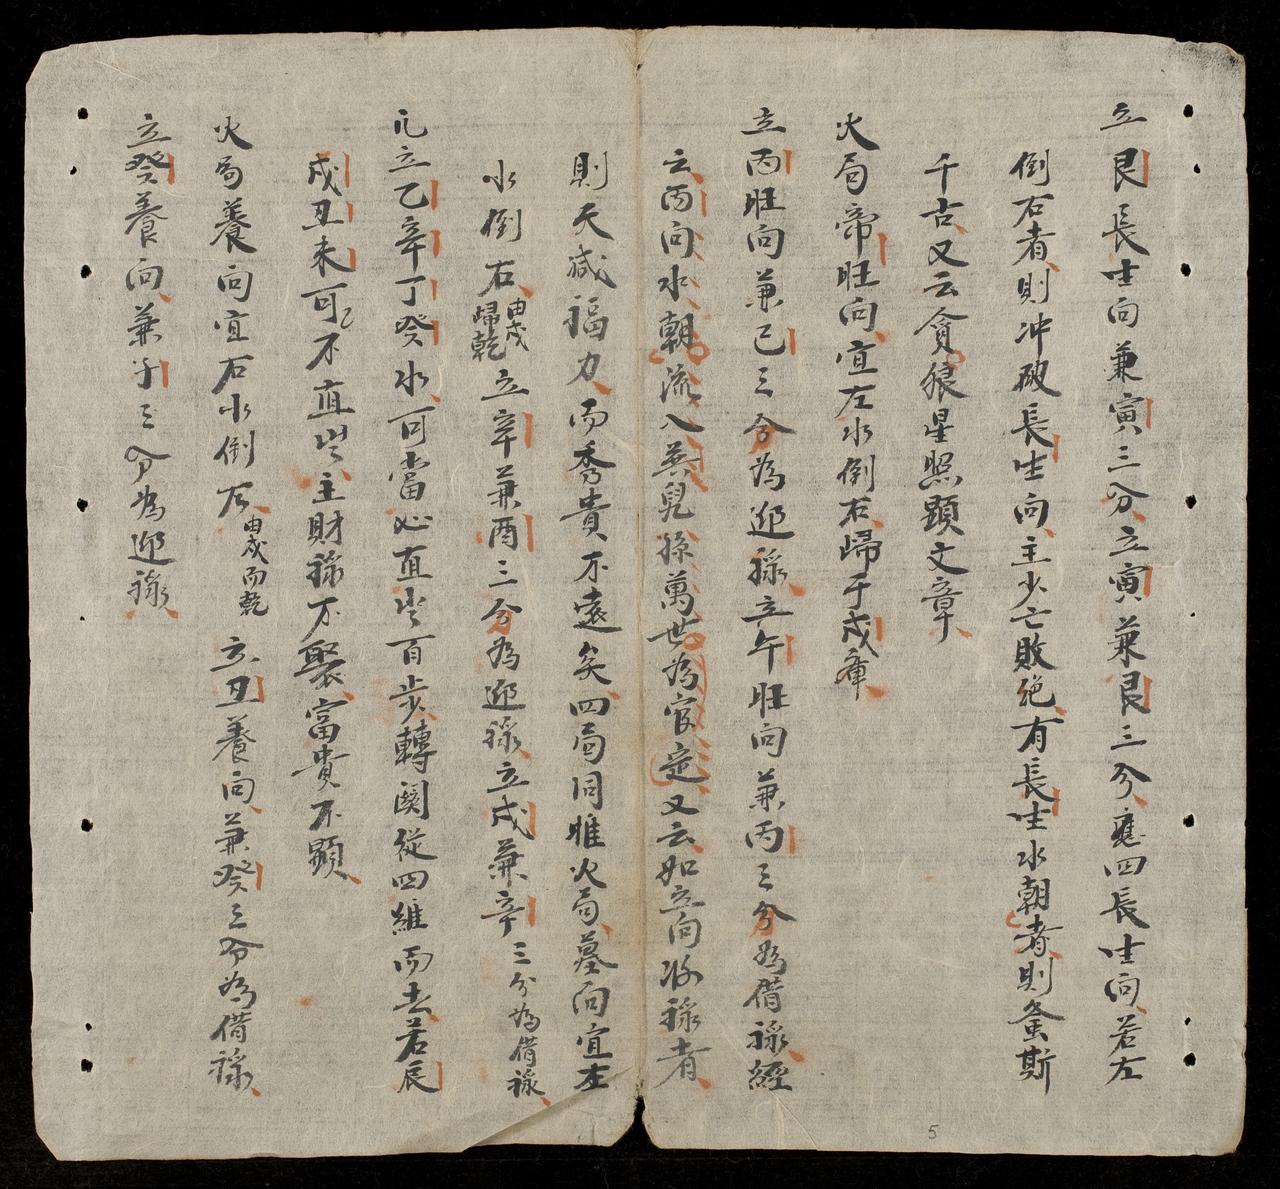 立艮長生向兼寅三分立寅兼艮三分應四長生向若左
倒右者則冲破長生向主少亡敗絶有長生水朝者則螽斯
千古又云貪狼星照顯文章
火局帝旺向宜左水倒右歸于戌庫
立丙旺向兼巳三分為迎祿立午旺向兼丙三分為借祿經
云丙向水朝流入巽兒孫萬世為官定又云如立向沵祿者
則天减福力而秀貴不遠矣四局同惟火局墓向宜左
水倒右由戌歸乾立辛兼酉三分為迎祿立戌兼辛三分為借祿
凡立乙辛丁癸水可當必直出百步轉関從四維而去若辰
戌丑未可不直出主財祿不聚富貴不顯
火局養向宜右水倒左由戌而乾立丑養向兼癸三分為借祿
立癸養向兼子三分為迎祿
5